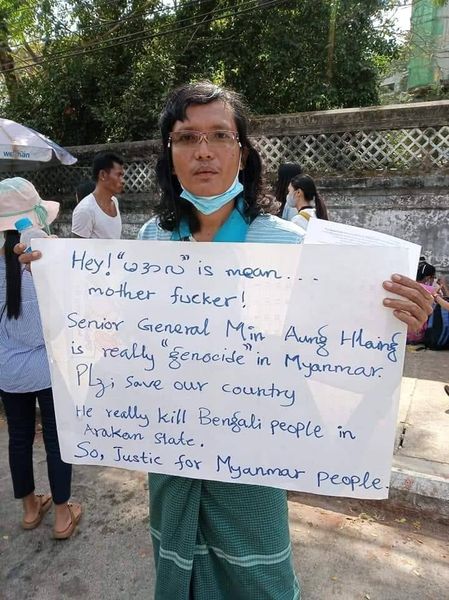 Hey! "မအလ" is mean...
mother fucker!
Senior General Min Aung Hlaing
is really "genocide" in Myanmar.
Plz; save our country
He really kill Bengali people in
Arakan state.
So, Justic for Myanmar people.